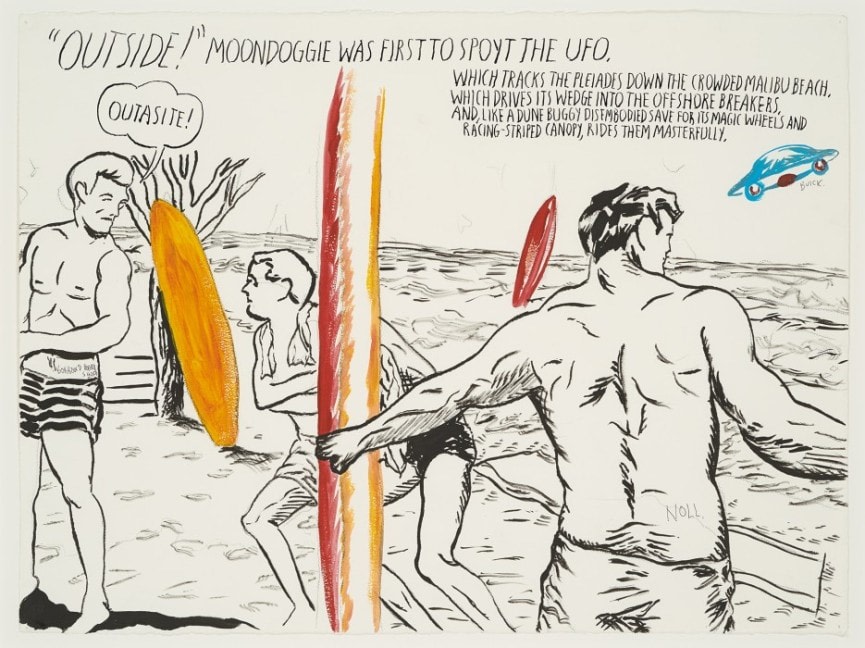 "OUTSIDE!" MOONDOGGIE WAS FIRST TO SPOYT THE UFO.
WHICH TRACKS THE PLEIADES DOWN THE CROWDED MALIBU BEACH,
WHICH DRIVES ITS WEDGE INTO THE OFFSHORE BREAKERS,
AND, LIKE A DUNE BUGGY DISEMBODIED SAVE FOR ITS MAGIC WHEELS AND
RACING-STRIPED CANOPY, RIDES THEM MASTERFULLY.
OUTASITE!
BUICK.
NOLL.